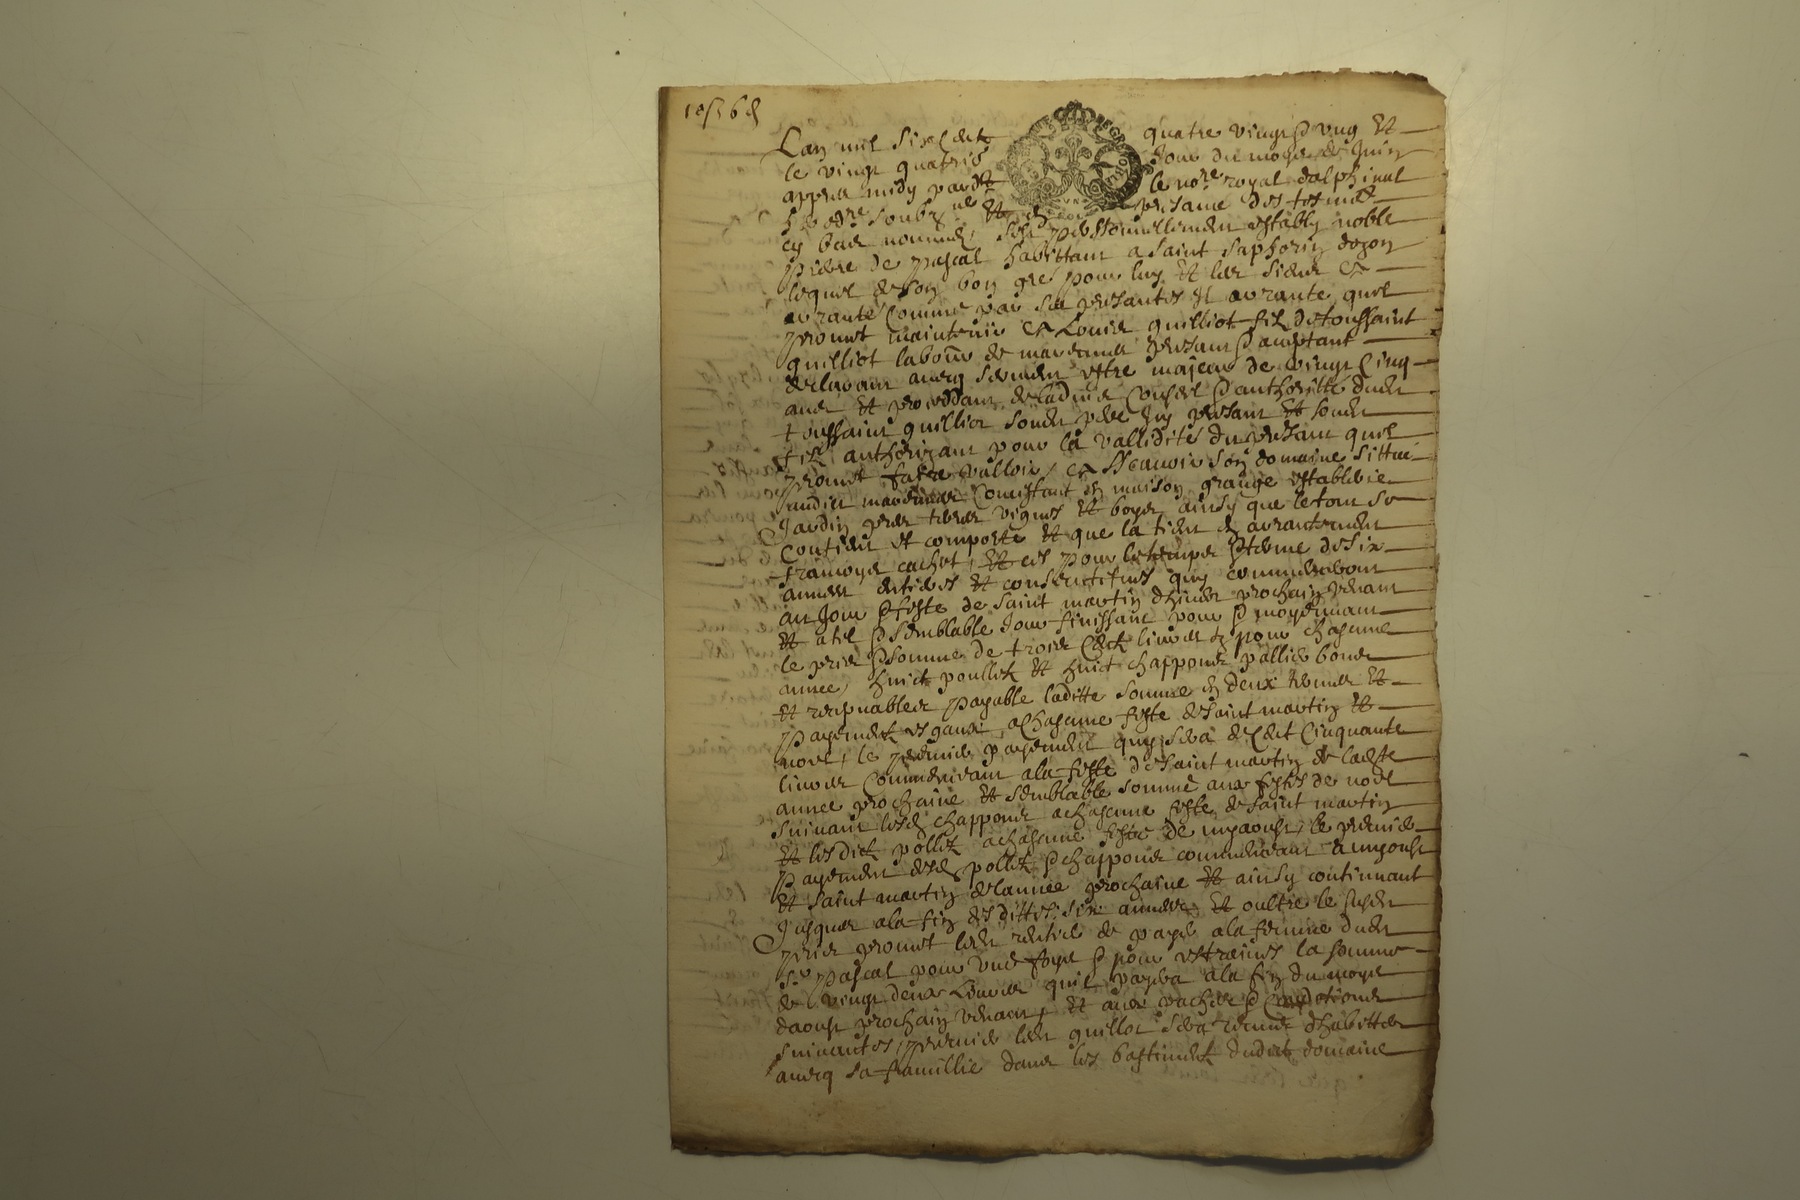 Lan mil six cent quatre vingt & ung Et
le vingt quatrie Jour du moys de Juin
appres midy pardt le nore royal dalphinal
hre soubzne Et en presance des tesmoings
cy bas nommes, sest personnellement estably noble
pierre de pascal habittant a saint saphorin dozon
lequel de son bon gre pour luy Et les siens &
arrante comme par ses presantes Il arrante quil
promet maintenir & Louis quilliot filz de toussaint
quilliot laboure de marennes presant & acceptant
declarant avecq serment estre majeur de vingt cinq
ans Et proceddant de ladvis conseil & authoritte dudit
toussaint quilliot sondit pere Icy presant Et sondit
filz authorizant pour la vallidites du presant quil
promet faire valloir, & Scauoir son domaine sittue
audict marennes Consistant en maison grange estableries
Jardin prez terres vignes Et boys ainsy que le tout se
contient et comporte Et que la tient en arrantement
francoys cachet, Et ces pour le temps & terme de six
annees entieres Et consecutifves quy commenceront
au Jour & feste de saint martin dhiver prochain venant
Et a tel & semblable Jour finissant pour & moyennant
le pris & somme de trois cent livres & pour chascune
annee, huict poulletz Et huict chappons pallier bons
Et receptuables payable laditte somme en deux termes Et
payementz esgaux, a chascune feste de saint martin Et
noel, le premier payement quy sera de cent cinquante
livres Commencant a la feste de saint martin de laditte
annee prochaine Et semblable somme aux festes de noel
suivant lesd chappons a chascune feste de saint martin
Et lesdictz polletz a chascune feste de myaoust, le premier
payement desd polletz & chappons commencant a myoust
Et saint martin de lannee prochaine Et ainsy continuant
Jusques a la fin desdittes six annees, Et oultre le susdit
pris promet ledit rentier de payer a la femme dudit
sr pascal pour une foys & pour estraines la somme
de vingt deux Livres quil payera a la fin du moys
daoust prochain venant, Et aux paches & conditions
suivantes, premier ledit quilliot sera tenu dhabitter
avecq sa famillie dans les bastiments dudict domaine